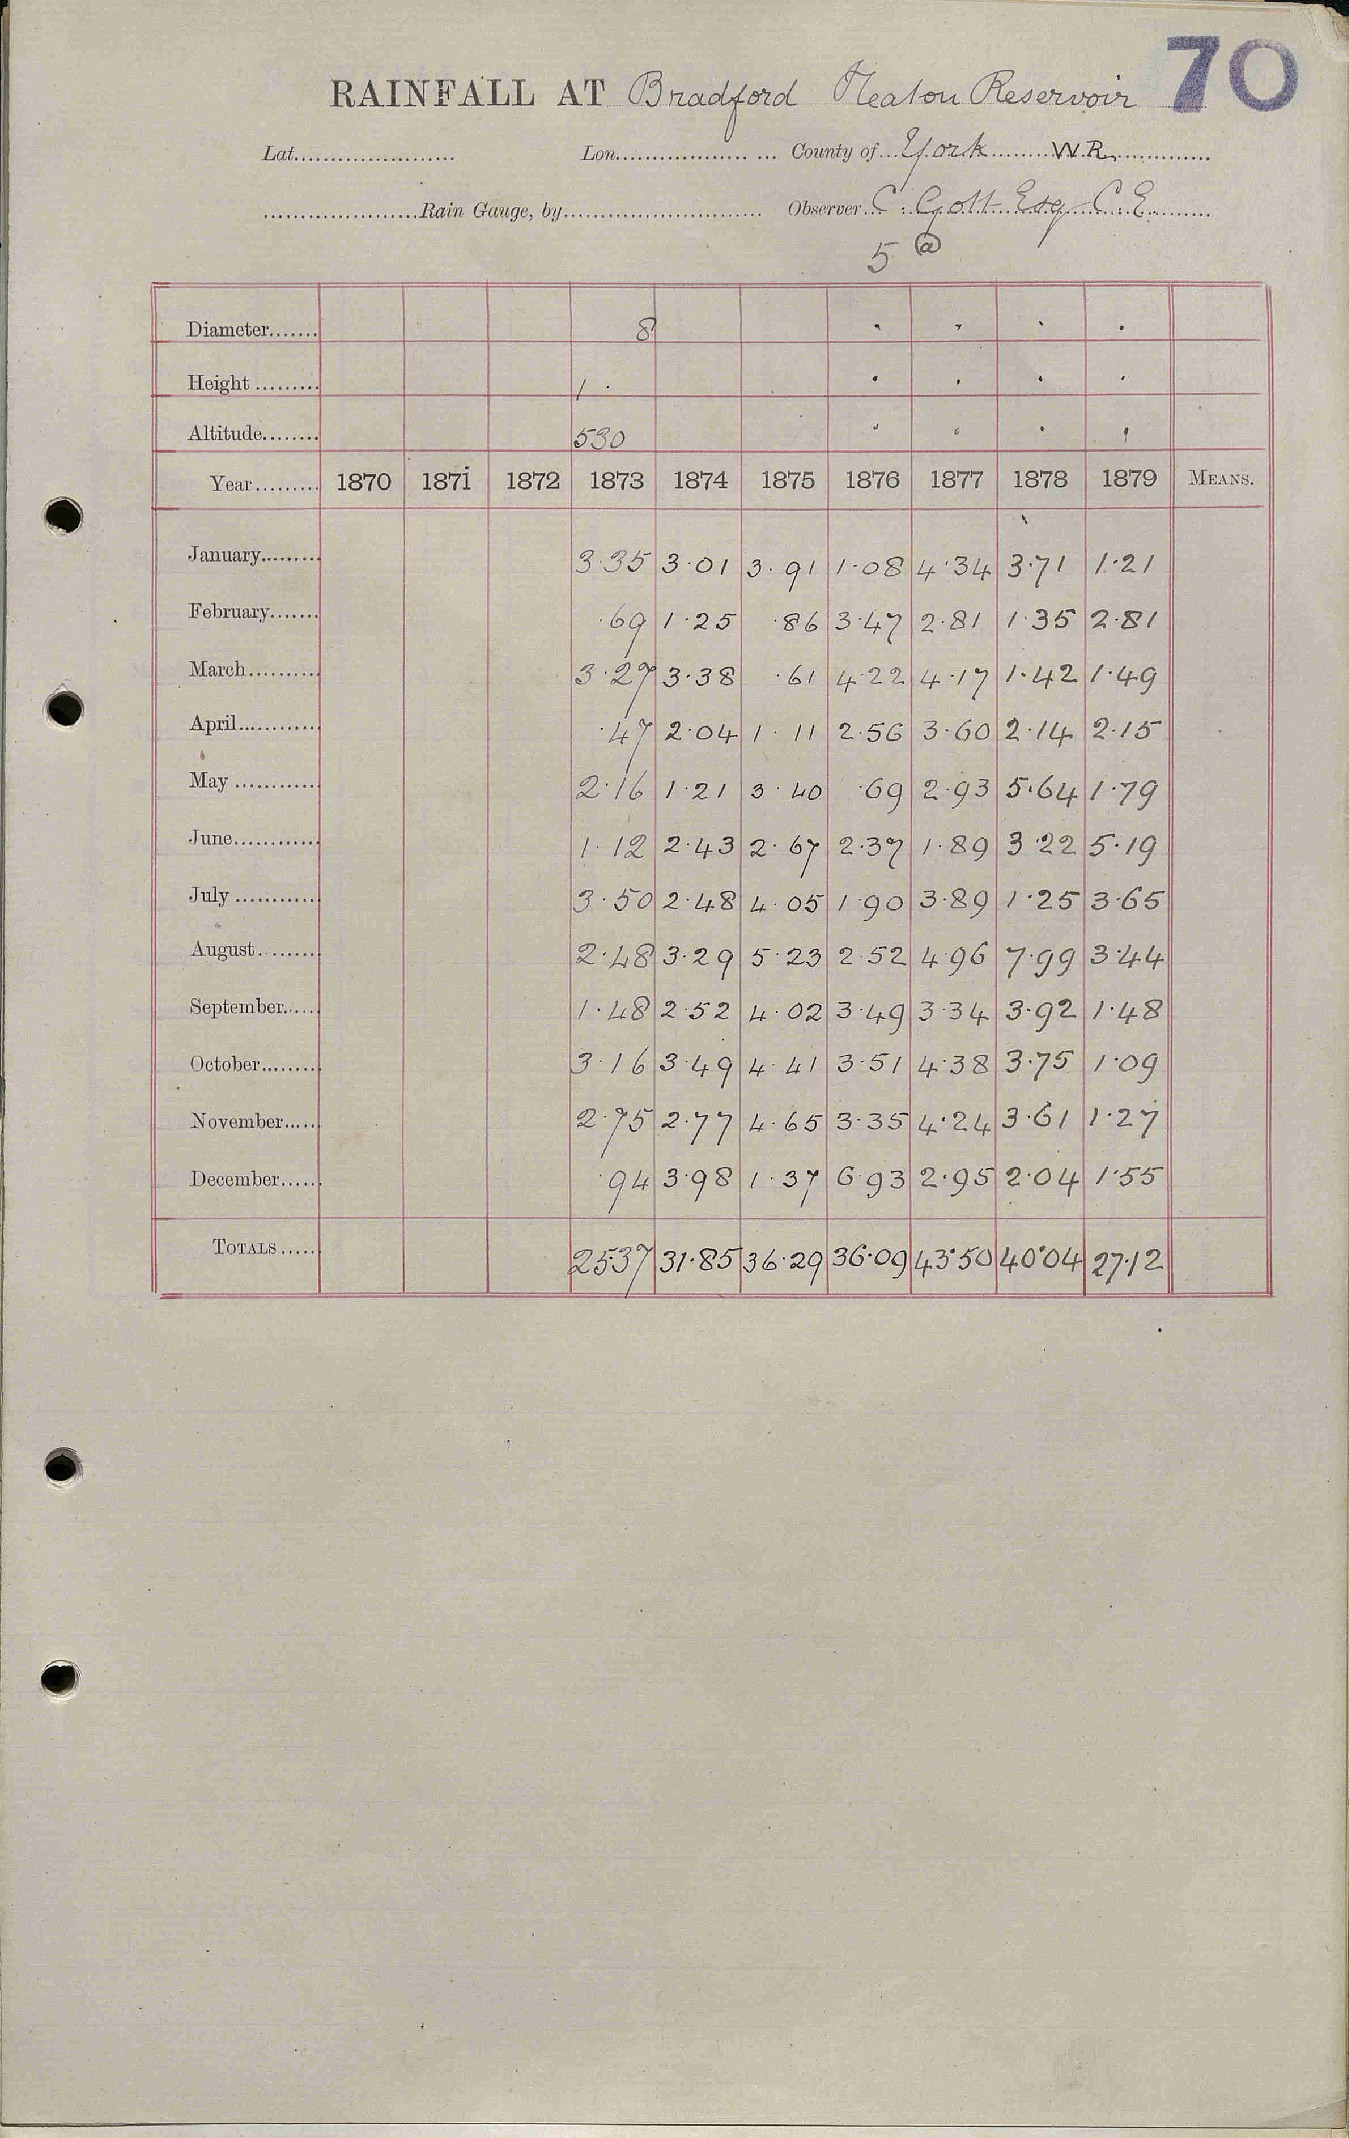 70
RAINFALL AT Bradford Heaton Reservoir
Lat...................... Lon.................. ... County of...York.........W.R...............
.....................Rain Gauge, by........................... Observer...C. Gott Esq C.E.........
5 (a)
Diameter....... 8 · · · ·
Height ......... 1 · · · · ·
Altitude........ 530
Year......... 1870 1871 1872 1873 1874 1875 1876 1877 1878 1879 MEANS.
January......... 3·35 3·01 3·91 1·08 4·34 3·71 1·21
February....... ·69 1·25 ·86 3·47 2·81 1·35 2·81
March.......... 3·27 3·38 ·61 4·22 4·17 1·42 1·49
April............ ·47 2·04 1·11 2·56 3·60 2·14 2·15
May ............ 2·16 1·21 3·40 ·69 2·93 5·64 1·79
June............ 1·12 2·43 2·67 2·37 1·89 3·22 5·19
July ............ 3·50 2·48 4·05 1·90 3·89 1·25 3·65
August......... 2·48 3·29 5·23 2·52 4·96 7·99 3·44
September...... 1·48 2·52 4·02 3·49 3·34 3·92 1·48
October......... 3·16 3·49 4·41 3·51 4·38 3·75 1·09
November..... 2·75 2·77 4·65 3·35 4·24 3·61 1·27
December...... ·94 3·98 1·37 6·93 2·95 2·04 1·55
TOTALS...... 25·37 31·85 36·29 36·09 43·50 40·04 27·12